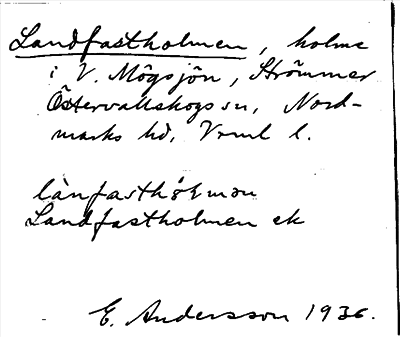 Landfastholmen, holme
i V. Mögsjön, Strömmer
Östervallskogs sn, Nord-
marks hd, Vrml l.
lànfasthòlmən
Landfastholmen ek
E. Andersson 1936.